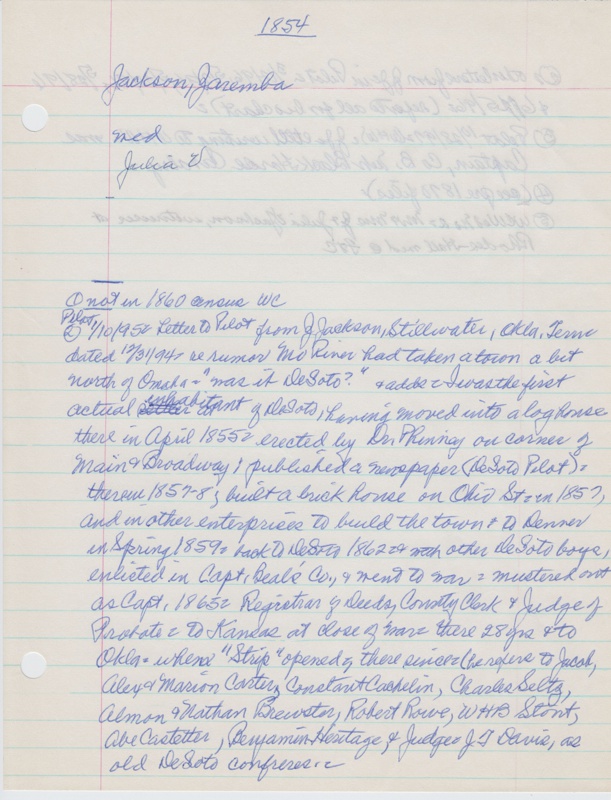 1854
Jackson, Zaremba
med
Julia V
① not in 1860 census WC
Pilot,
② 1/10/95= Letter to Pilot from J. Jackson, Stillwater, Okla. Terr.
dated 12/31/94= re rumor Mo River had taken a town a bit
north of Omaha= "was it DeSoto?" & adds= I was the first
actual inhabitant of DeSoto, having moved into a log house
there in April 1855= erected by Dr. Phinney on corner of
Main & Broadway; published a newspaper (DeSoto Pilot)=
therein 1857-8; built a brick house on Ohio St= in 1857,
and in other enterprises to build the town & to Denver
in Spring 1859= back to DeSoto 1862= & with other DeSoto boys,
enlisted in Capt. Beal's Co., & went to war= mustered out
as Capt. 1865= Registrar of Deeds, County Clerk & Judge of
Probate= to Kansas at close of war= there 28 yrs & to
Okla= when "Strip" opened & there since= (he refers to Jacob,
Alex & Marion Carter, Constant Cachelin, Charles Seltz,
Almon & Nathan Brewster, Robert Rowe, WHB Stout,
Abe Castetter, Benjamin Heritage & Judge J I Davis, as
old DeSoto confreres.=